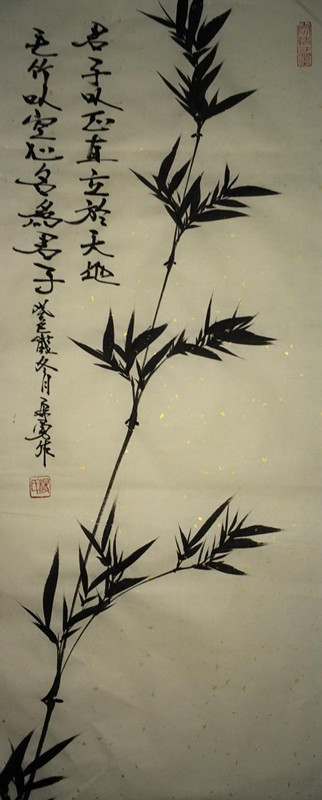 君子以正直立於天地
毛竹以空心名為君子
癸巳歲冬月